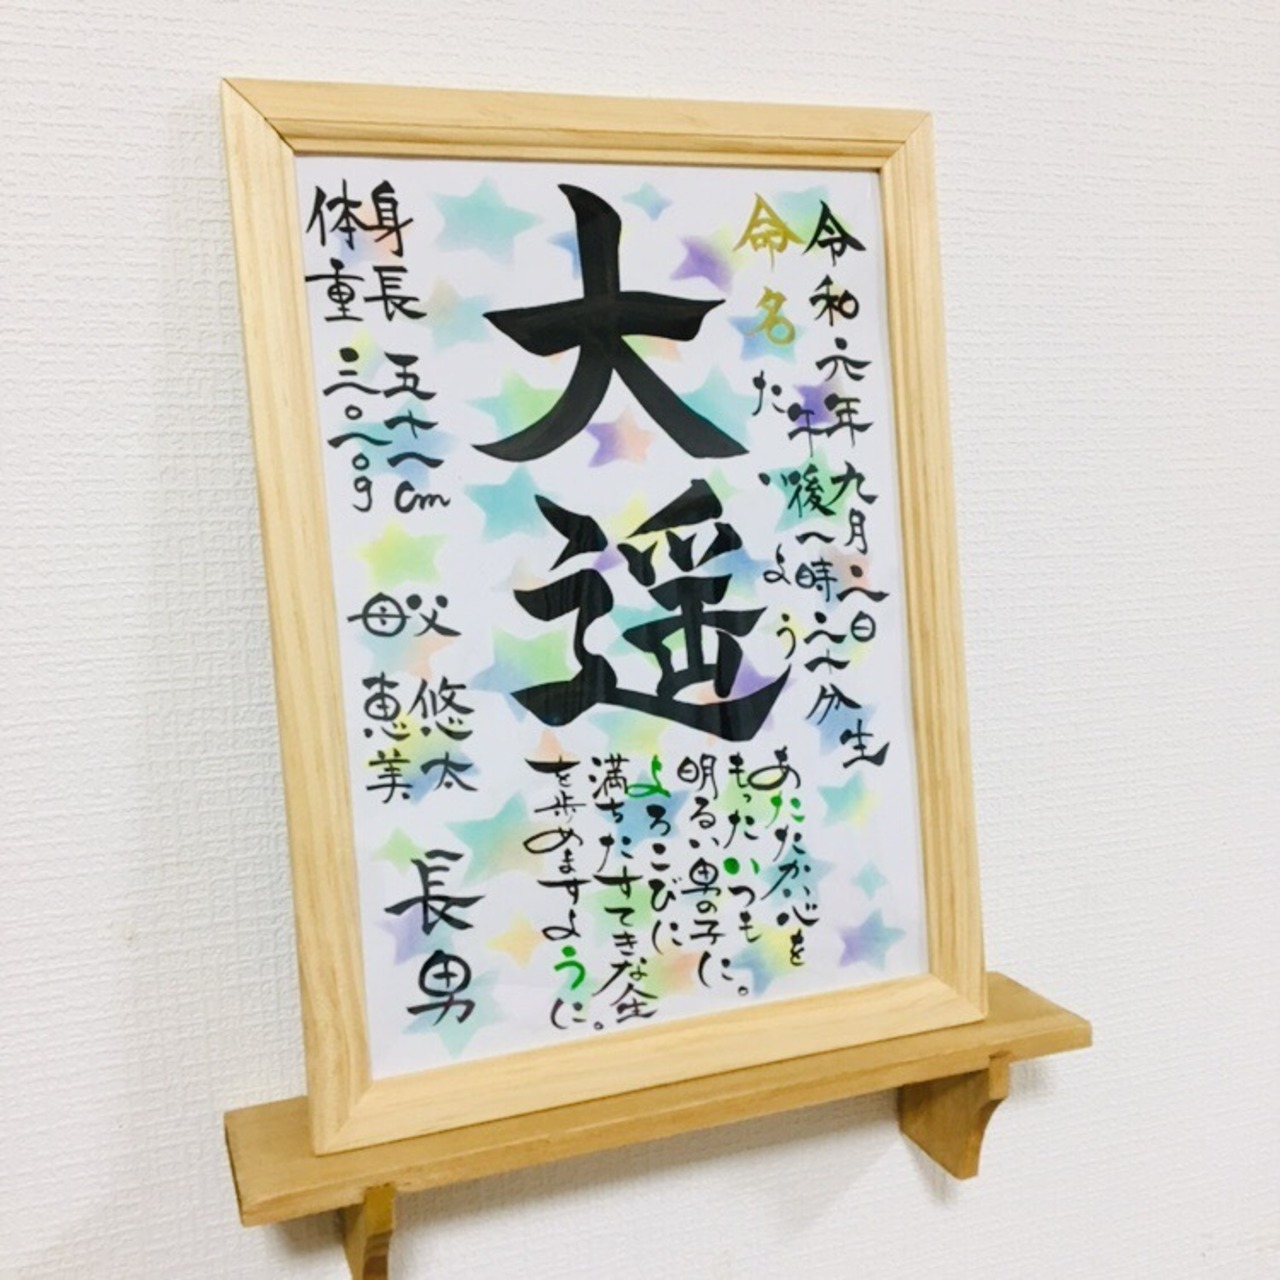 令和元年九月三日生
午後一時二十分
命名
たいよう
大遥
あたたかい心を
もったいつも
明るい男の子に。
よろこびに
満ちたすてきな人生
を歩めますように。
身長 五十一cm
体重 三〇一〇g
父 悠太
母 恵美
長男